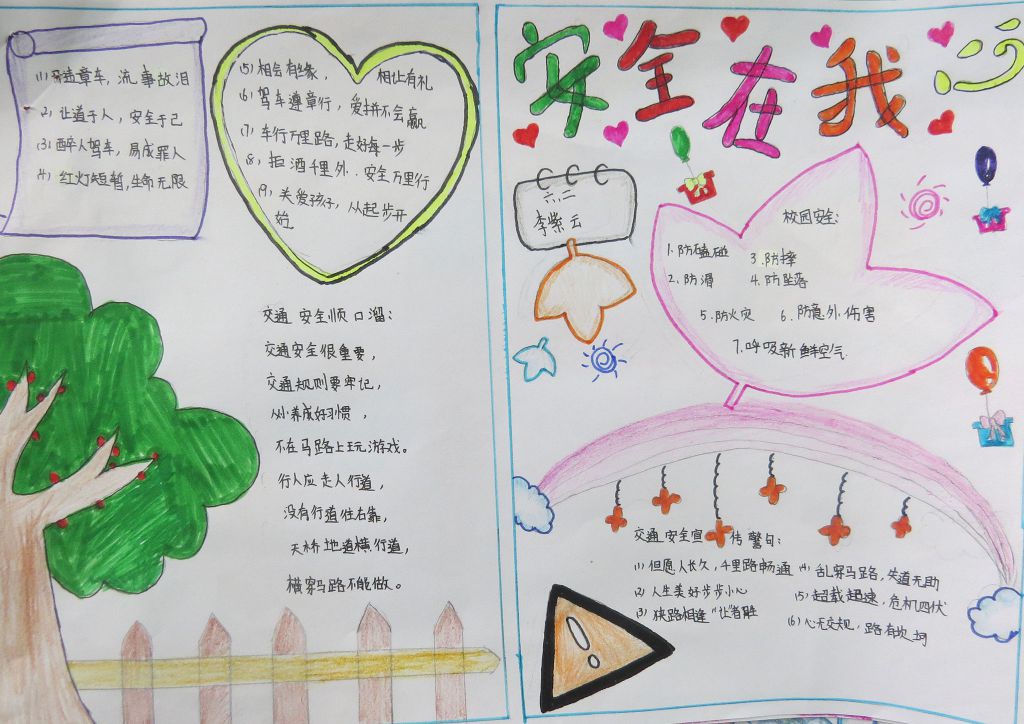 (1) 违章车,流事故泪
(2) 让道于人,安全于己
(3) 醉人驾车,易成罪人
(4) 红灯短暂,生命无限
(5) 相会有缘,相让有礼
(6) 驾车遵章行,爱拼不会赢
(7) 车行万里路,走好每一步
(8) 拒酒千里外..安全万里行
(9) 关爱孩子,从起步开
始
交通安全顺口溜:
交通安全很重要,
交通规则要牢记,
从小养成好习惯,
不在马路上玩游戏。
行人应走人行道,
没有行道往右靠,
天桥地道横行道,
横穿马路不能做。
安全在我
六.二
李紫云
校园安全:
1.防磕碰 3.防摔
2.防滑 4.防坠落
5.防火灾 6.防意外伤害
7.呼吸新鲜空气
交通安全宣传警句:
(1) 但愿人长久,千里路畅通 (4) 乱穿马路,失道无助
(2) 人生美好步步小心 (5) 超载超速,危机四伏
(3) 狭路相逢"让"者胜 (6) 心无交规,路有坎坷